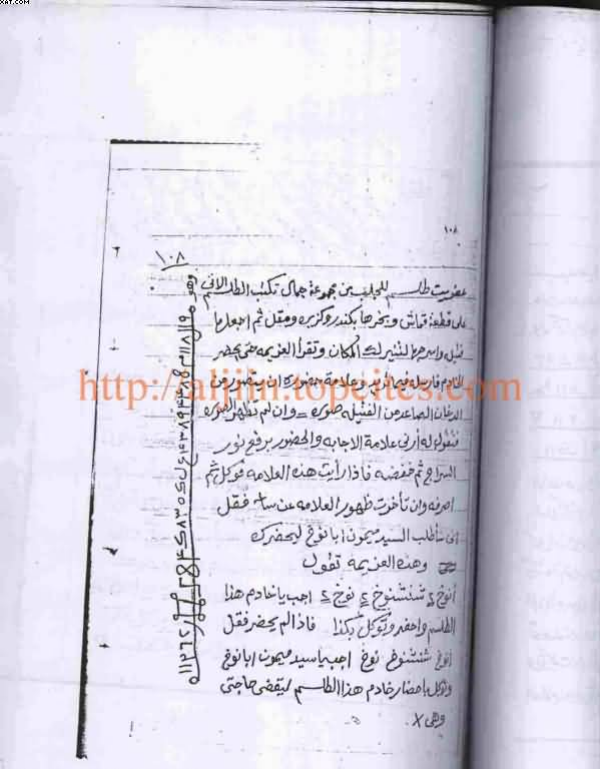 XAT.COM
١٠٨
١٠٨
عفريت طلسم للجلب من مجموعة جمال تكتب الطلسم الاتى
على قطعة قماش وبخرها بكندر وكزبره ومقل ثم اجعلها
فتيل واسرجها لتنير لك المكان وتقرأ العزيمه حتى يحضر
الخادم فارسله فيما تريد وعلامة حضوره ان يتصور من
الدخان الصاعد من الفتيله صوره = وان لم تظهر الصوره
فتقول له أرنى علامة الاجابه والحضور برفع نور
السراج ثم خفضه فاذا رأيت هذه العلامه فوكل ثم
اصرفه وان تأخرت ظهور العلامه عن فقل
انى سأطلب السيد ميمون ابا نوخ ليحضرك
وهذه العزيمه تقول
أنوخ ٢ شنشنوخ ٢ نوخ ٢ اجب يا خادم هذا
الطلسم واحضر وتوكل بكذا فاذا لم يحضر فقل
انوخ شنشنوخ نوخ اجب يا سيد ميمون ابا نوخ
وتوكل باحضار خادم هذا الطلسم ليقضى حاجتى
وهى x.
وهو
http://aljjin.topcities.com